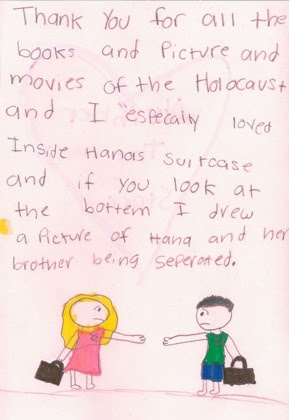 Thank You for all the
books and Picture and
movies of the Holocaust
and I "especaily loved
Inside Hanas Suitcase
and if you look at
the bottem I drew
a Picture of Hana and her
brother being seperated.